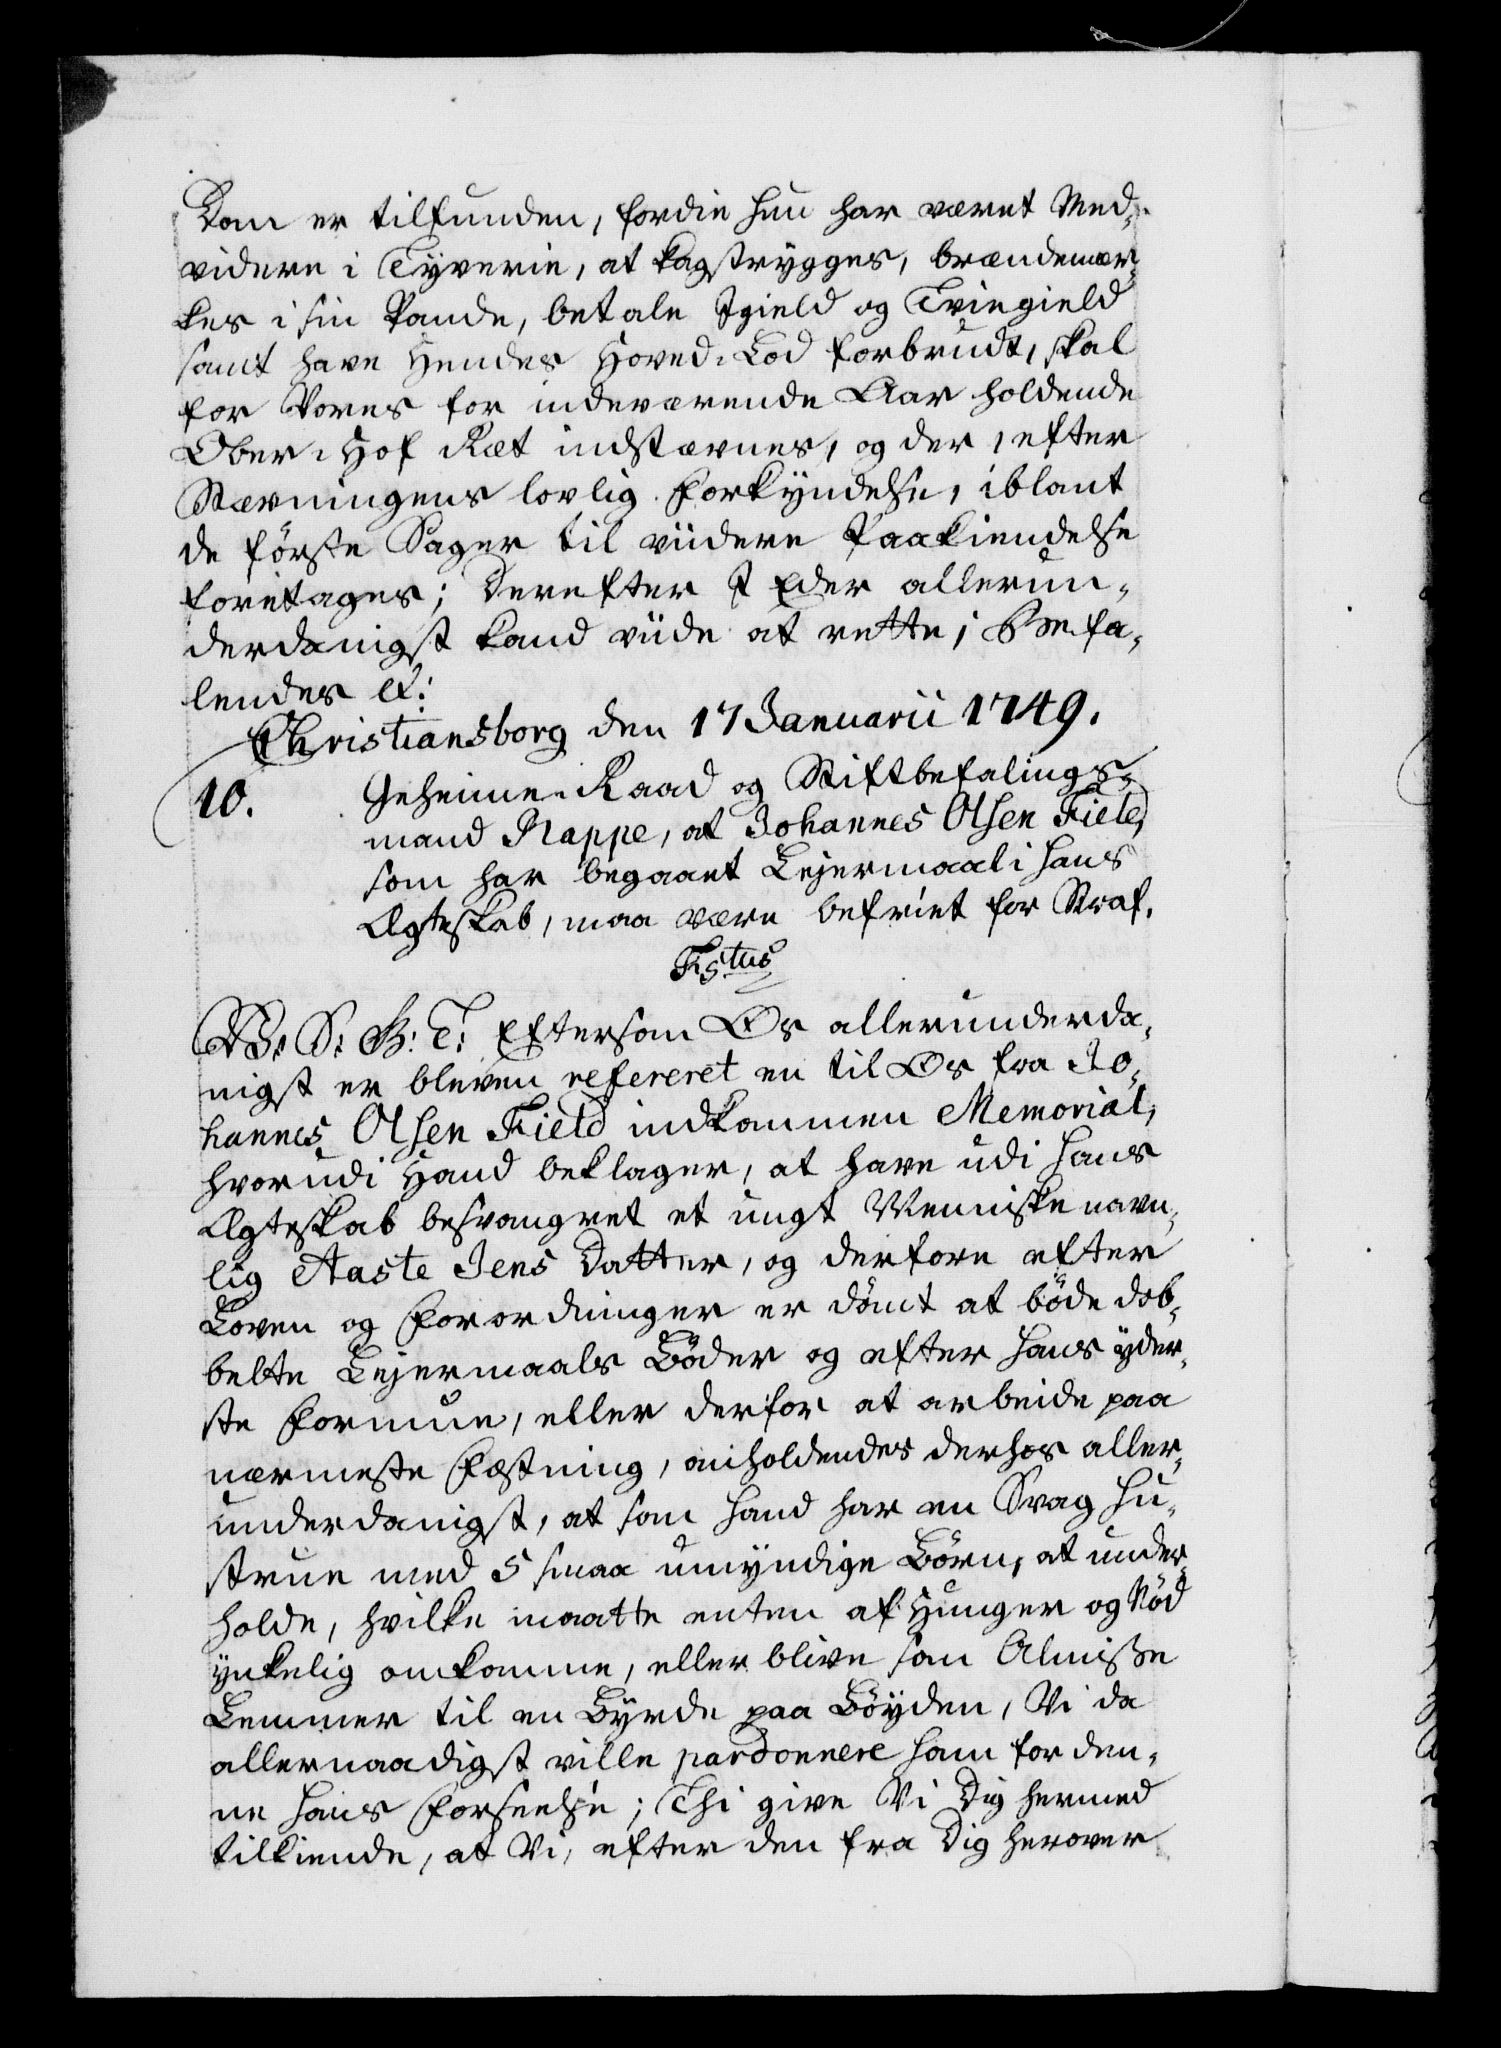 Dom er tilfunden, fordie hun har været Med-
videre i Tyverie, at kagstrygges, brændemær-
kes i sin Pande, betale Igield og Tviegield
samt have Hendes Hoved-Lod forbrudt, skal
for Vores for indeværende Aar holdende
Ober-Hof-Ræt indstævnes, og der, efter
Stævningens lovlig Forkyndelse, iblant
de förste Sager til viidere Paakiendelse
foretages; Derefter I Eder allerun-
derdanigst kand viide at rette; Befa-
lendes etc:
Christiansborg den 17 Januarii 1749.
10. Geheime-Raad og Stiftbefalings-
mand Rappe, at Johannes Olsen Field,
som har begaaet Lejermaal i hans
Ægteskab, maa være befriet for Straf.
Fr5tus
V. S. G. T. Eftersom Os allerunderda-
nigst er bleven refereret en til Os fra Jo-
hannes Olsen Field indkommen Memorial,
hvorudi Hand beklager, at have udi hans
Ægteskab besvangret et ungt Menniske navn-
lig Aaste Jens Datter, og derfore efter
Loven og Forordninger er dömt at böde dob-
belte Lejermaals Böder og efter hans yder-
ste Formue, eller derfor at arbeide paa
nærmeste Fæstning, anholdendes derhos aller-
underdanigst, at som hand har en Svag Hu-
strue med 5 smaa umyndige Börn, at under-
holde, hvilke maatte enten af Hunger og Nöd
ynkelig omkomme, eller blive som Almisse
Lemmer til en Byrde paa Böyden, Vi da
allernaadigst ville pardonnere ham for den-
ne hans Forseelse; Thi give Vi Dig hermed
tilkiende, at Vi, efter den fra Dig herover